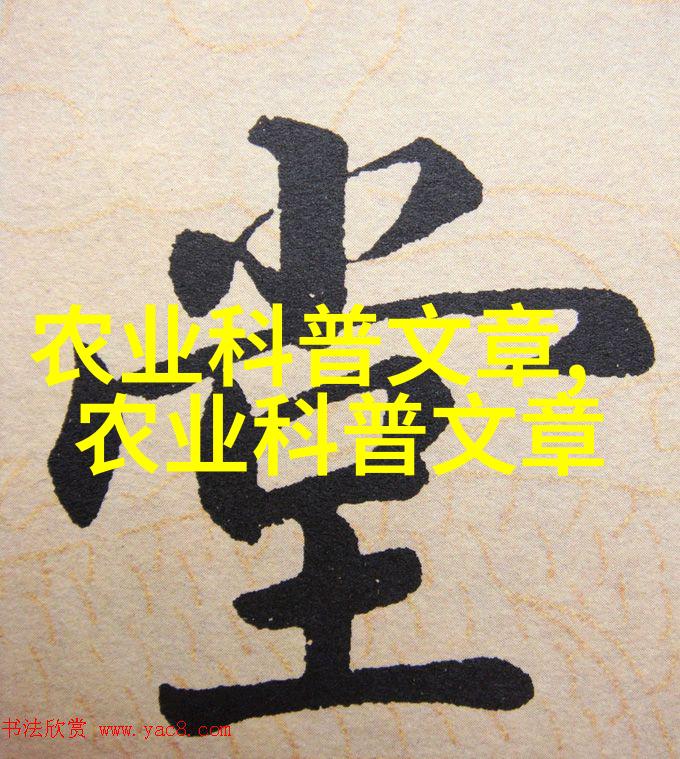 堂
农业科普文章,
农业科普文章
书法欣赏 www.yac8.com